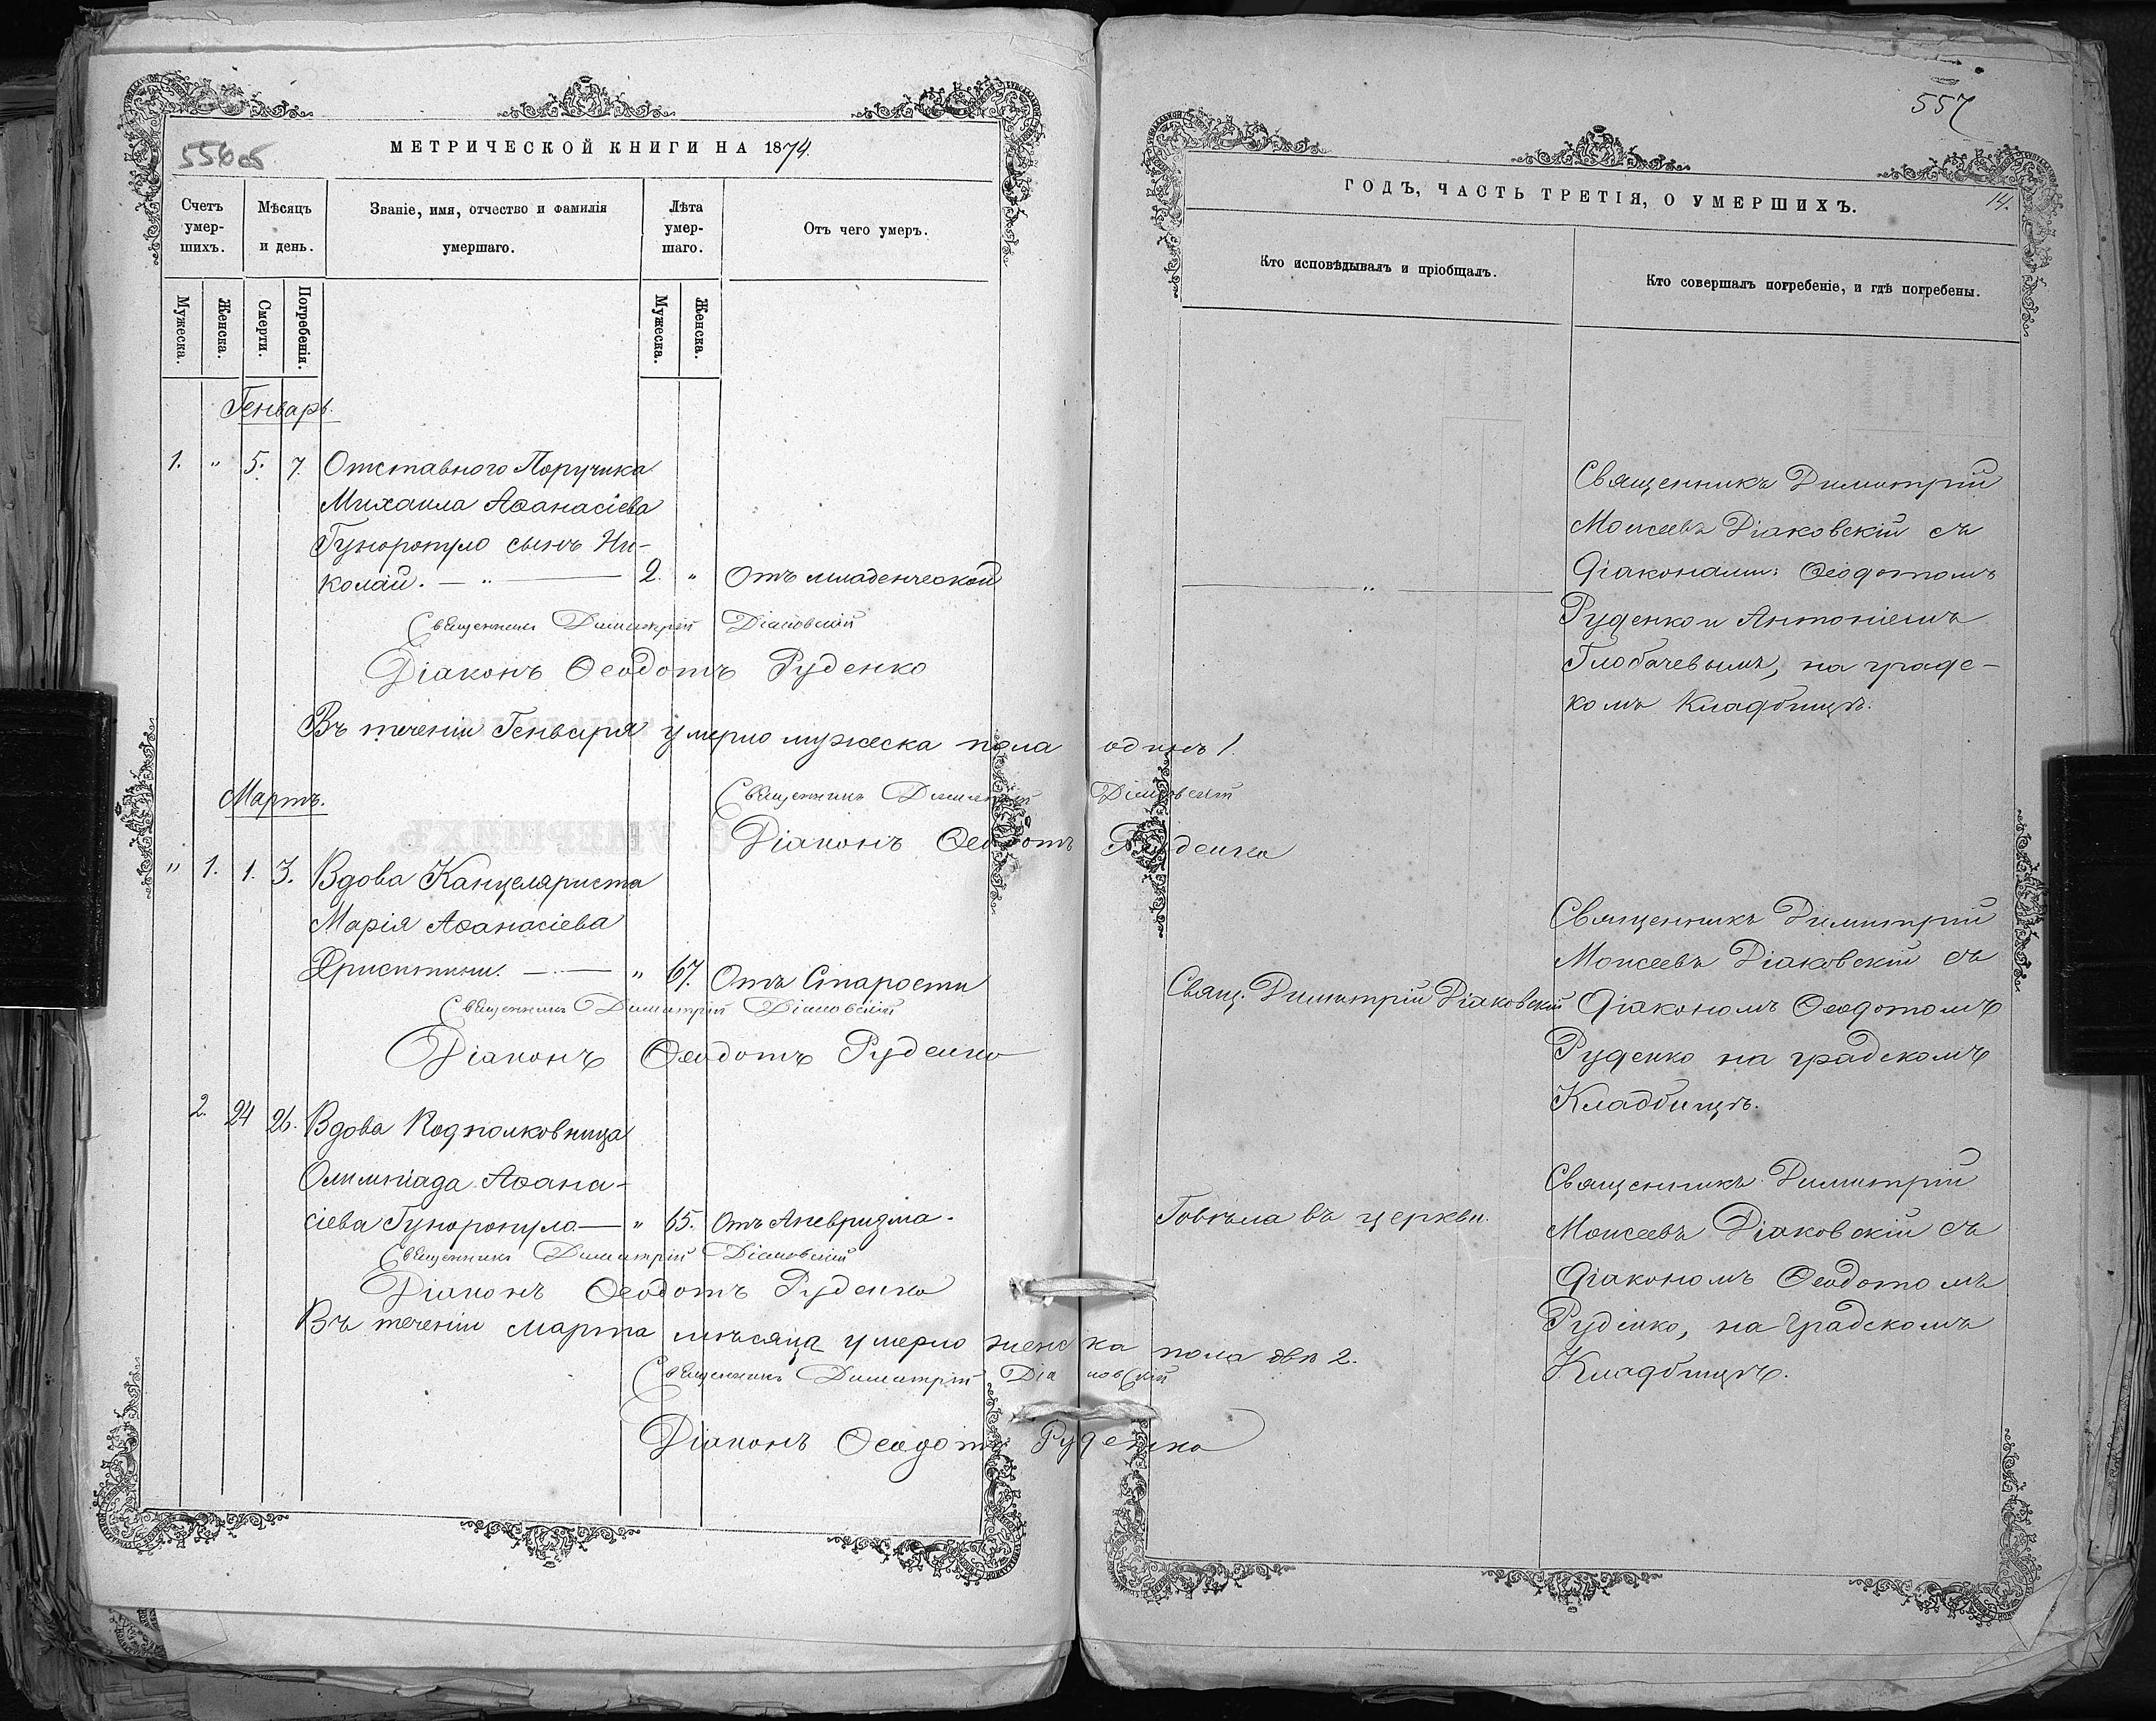 556 об
МЕТРИЧЕСКОЙ КНИГИ НА 1874.
Счетъ умер-шихъ.
Мѣсяцъ и день.
Званіе, имя, отчество и фамилія умершаго.
Лѣта умер-шаго.
Отъ чего умеръ.
Мужеска.
Женска.
Смерти.
Погребенія.
Мужеска.
Женска.
Генварь.
1. " 5. 7. Отставного Поручика
Михаила Аѳанасіева
Гунаропуло сынъ Ни-
колай. — " — 2. " Отъ младенческой
Священникъ Димитрій Діаковскій
Діаконъ Ѳеодотъ Руденко
Въ теченіи Генваря умерло мужеска пола одинъ 1.
Священникъ Димитрій Діаковскій
Діаконъ Ѳеодотъ Руденко
Мартъ.
" 1. 1. 3. Вдова Канцеляриста
Марія Аѳанасіева
" 67. Отъ Старости
Священникъ Димитрій Діаковскій
Діаконъ Ѳеодотъ Руденко
2. 24 26. Вдова Подполковница
Олимпіада Аѳана-
сіева Гунаропуло — " 65. Отъ Аневризма.
Священникъ Димитрій Діаковскій
Діаконъ Ѳеодотъ Руденко
Въ теченіи марта мѣсяца умерло женска пола двѣ 2.
Священникъ Димитрій Діаковскій
Діаконъ Ѳеодотъ Руденко
557
ГОДЪ, ЧАСТЬ ТРЕТІЯ, О УМЕРШИХЪ.
14.
Кто исповѣдывалъ и пріобщалъ.
Кто совершалъ погребеніе, и гдѣ погребены.
— " —
Священникъ Димитрій
Моисеевъ Діаковскій съ
Діаконами: Ѳеодотомъ
Руденко и Антоніемъ
Глобачевымъ, на градс-
комъ Кладбищѣ.
Свящ. Димитрій Діаковскій
Священникъ Димитрій
Моисеевъ Діаковскій съ
Діакономъ Ѳеодотомъ
Руденко на градскомъ
Кладбищѣ.
Говѣла въ церкви.
Священникъ Димитрій
Моисеевъ Діаковскій съ
Діакономъ Ѳеодотомъ
Руденко, на градскомъ
Кладбищѣ.